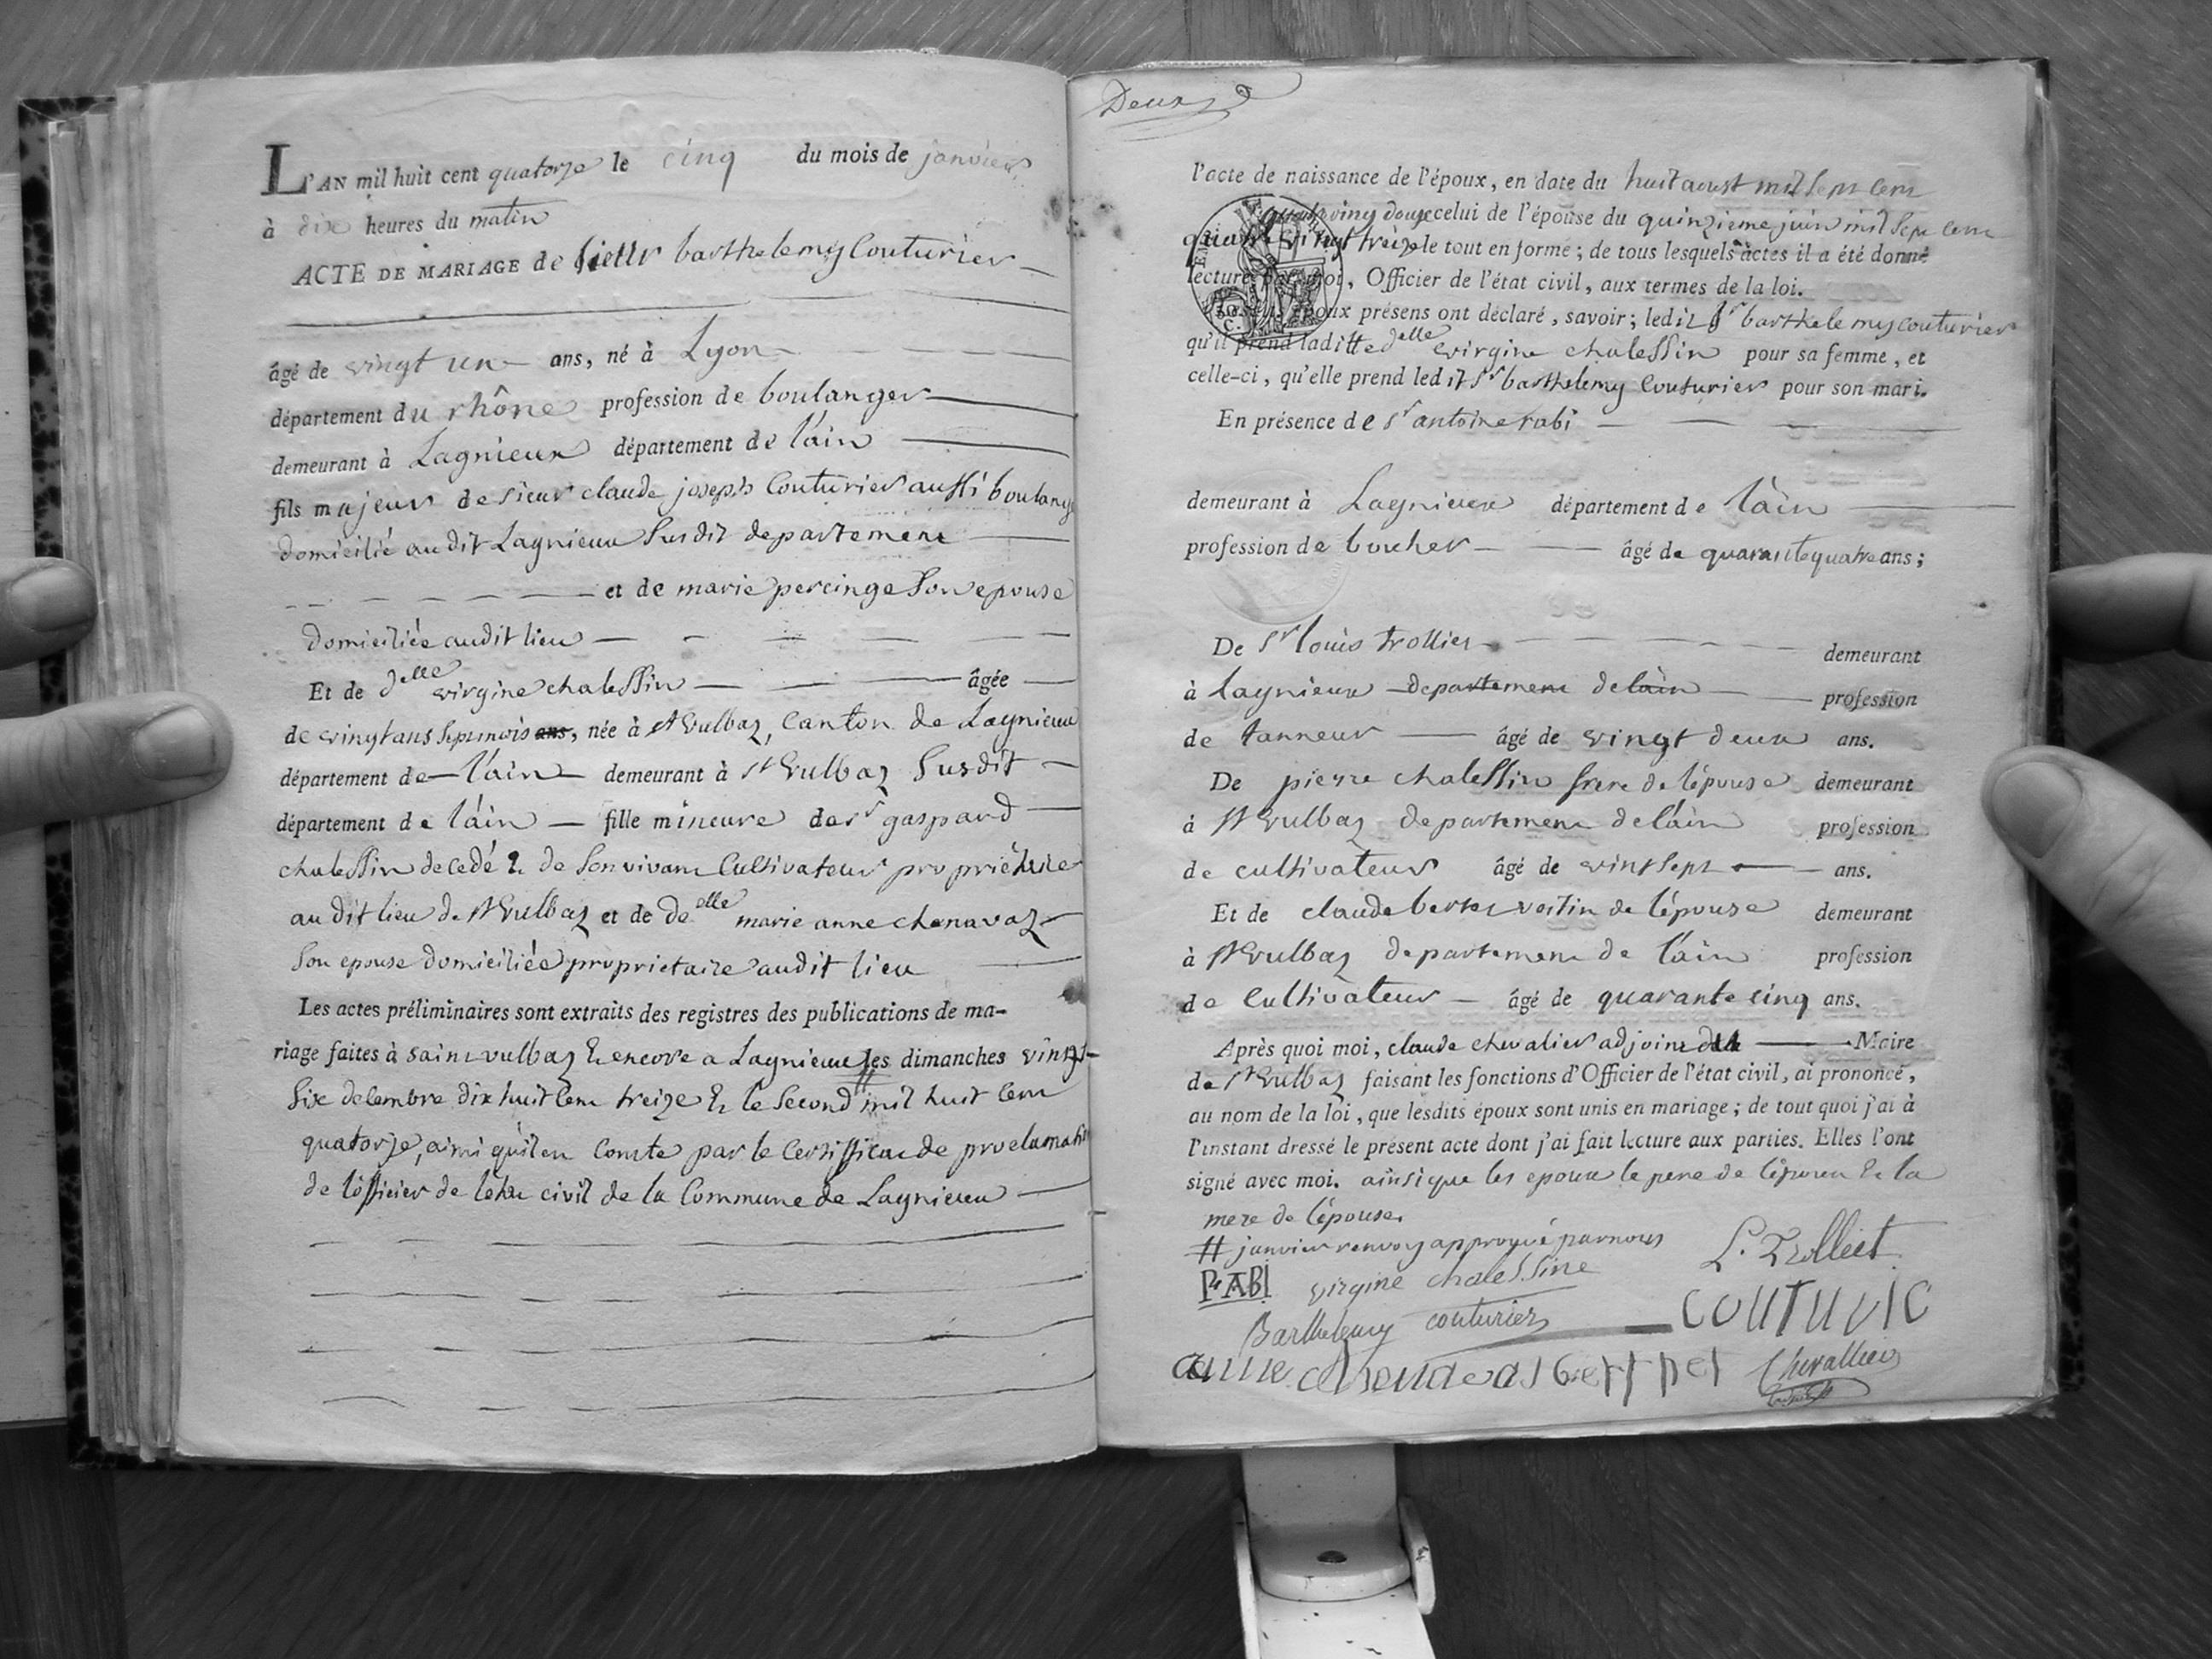 L'AN mil huit cent quatorze le cinq du mois de janvier
à dix heures du matin
ACTE DE MARIAGE de sieur barthelemy Couturier
âgé de vingt un ans, né à Lyon
département du rhône profession de boulanger
demeurant à Lagnieux département de l'ain
fils majeur de sieur claude joseph Couturier aussi boulanger
domicilié audit Lagnieux Susdit departement
et de marie percinge Son epouse
domiciliée audit lieu
Et de delle virgine chalessin âgée
de vingt ans sept mois ans, née à st Vulbaz, Canton de Lagnieux
département de l'ain demeurant à st Vulbaz Susdit
département de l'ain fille mineure de sr gaspard
chalessin decedé & de Son vivant Cultivateur propriétaire
au dit lieu de st Vulbaz et de delle marie anne chenavaz
Son epouse domiciliée propriétaire audit lieu
Les actes préliminaires sont extraits des registres des publications de ma-
riage faites à saint vulbaz & encore a Lagnieux les dimanches vingt
Six decembre dix huit cent treize & le Second # mil huit cent
quatorze, ainsi qu'il en Conste par le Certifficat de proclamation
de lofficier de letat civil de la Commune de Lagnieux
Deux
l'acte de naissance de l'époux, en date du huit aoust mil Sept Cent
quatre vingt douze celui de l'épouse du quinzieme juin mil Sept Cent
quatre vingt treize le tout en forme ; de tous lesquels actes il a été donné
lecture par moi, Officier de l'état civil, aux termes de la loi.
époux présens ont déclaré, savoir ; ledit Sr barthelemy couturier
qu'il prend laditte delle virgine chalessin pour sa femme, et
celle-ci, qu'elle prend ledit Sr barthelemy Couturier pour son mari.
En présence de Sr antoine rabi
demeurant à Lagnieux département de l'ain
profession de boucher âgé de quarante quatre ans ;
De Sr louis trollier demeurant
à Lagnieux departement de lain profession
de tanneur âgé de vingt deux ans.
De pierre chalessin frere de lépouse demeurant
à st vulbaz departement de lain profession
de cultivateur âgé de vint Sept ans.
Et de claude berter voisin de lépouse demeurant
à st vulbaz departement de l'ain profession
de Cultivateur âgé de quarante cinq ans.
Après quoi moi, claude chevalier adjoint du Maire
de st Vulbaz faisant les fonctions d'Officier de l'état civil, ai prononcé,
au nom de la loi, que lesdits époux sont unis en mariage ; de tout quoi j'ai à
l'instant dressé le présent acte dont j'ai fait lecture aux parties. Elles l'ont
signé avec moi. ainsi que les epoux le pere de l'époux & la
mere de l'épouse.
# janvier renvoy approuvé par nous
L. Trolliet
RABI virgine chalessine
Barthelemy couturier COUTUVIC
anne chenavas Chevallier